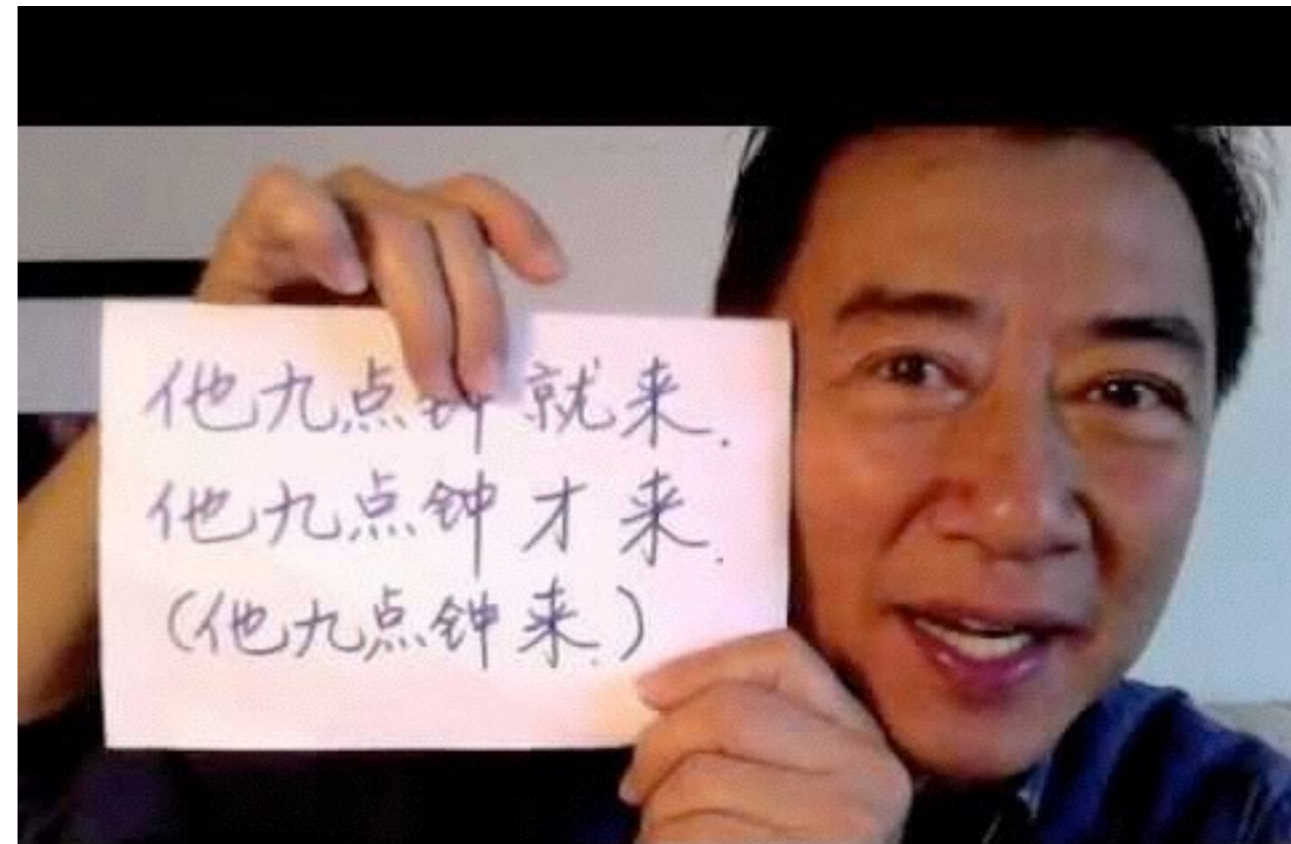 他九点钟就来.
他九点钟才来.
(他九点钟来.)